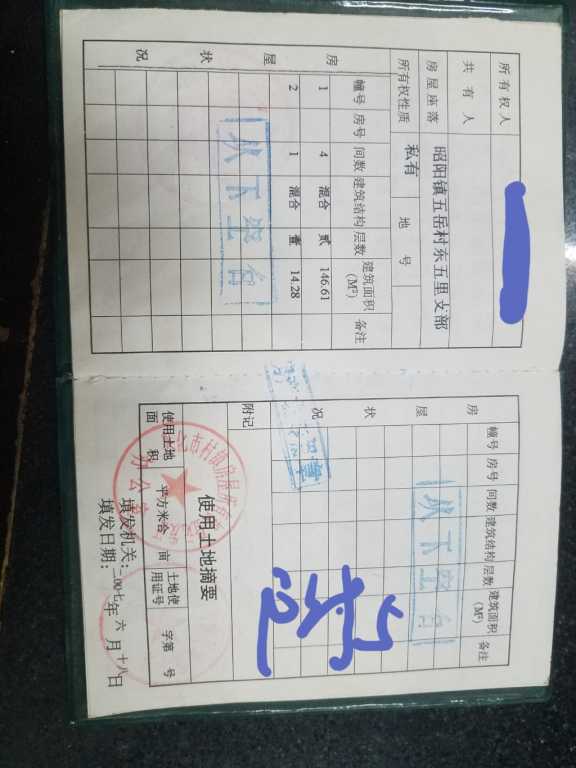 所有权人
共有人
房屋座落 昭阳镇五岳村东五里支部
所有权性质 私有 地号
房屋状况
幢号 房号 间数 建筑结构 层数 建筑面积(M²) 备注
1 4 混合 贰 146.61
2 1 混合 壹 14.28
以下空白
房屋状况
幢号 房号 间数 建筑结构 层数 建筑面积(M²) 备注
以下空白
附记
使用土地摘要
使用土地面积 平方米合 亩 土地使用证号 字第 号
填发机关:
填发日期:二00七年六月十八日